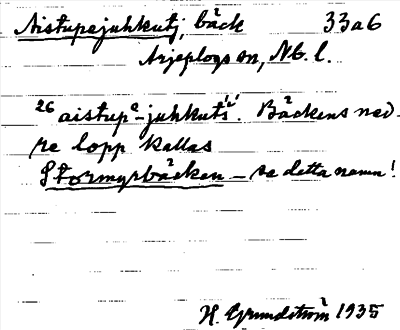 Aistupejuhkutj, bäck 33a6
Arjeplogs sn, Nb. l.
26 aistupe-juhkuts. Bäckens ned-
re lopp kallas
Stormyrbäcken – se detta namn!
H. Grundström 1935